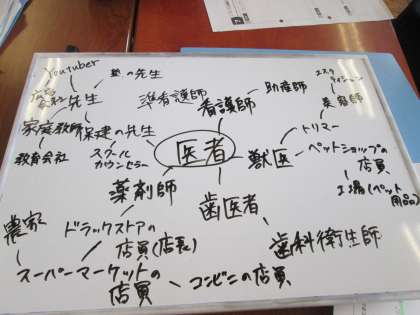 Youtuber
塾の先生
先生
家庭教師
教育会社
保健の先生
スクール
カウンセラー
准看護師
看護師
助産師
エステ
美容師
トリマー
医者
獣医
ペットショップの
店員
工場(ペット
用品)
薬剤師
歯医者
歯科衛生師
農家
ドラックストアの
店員(店長)
スーパーマーケットの
店員
コンビニの店員